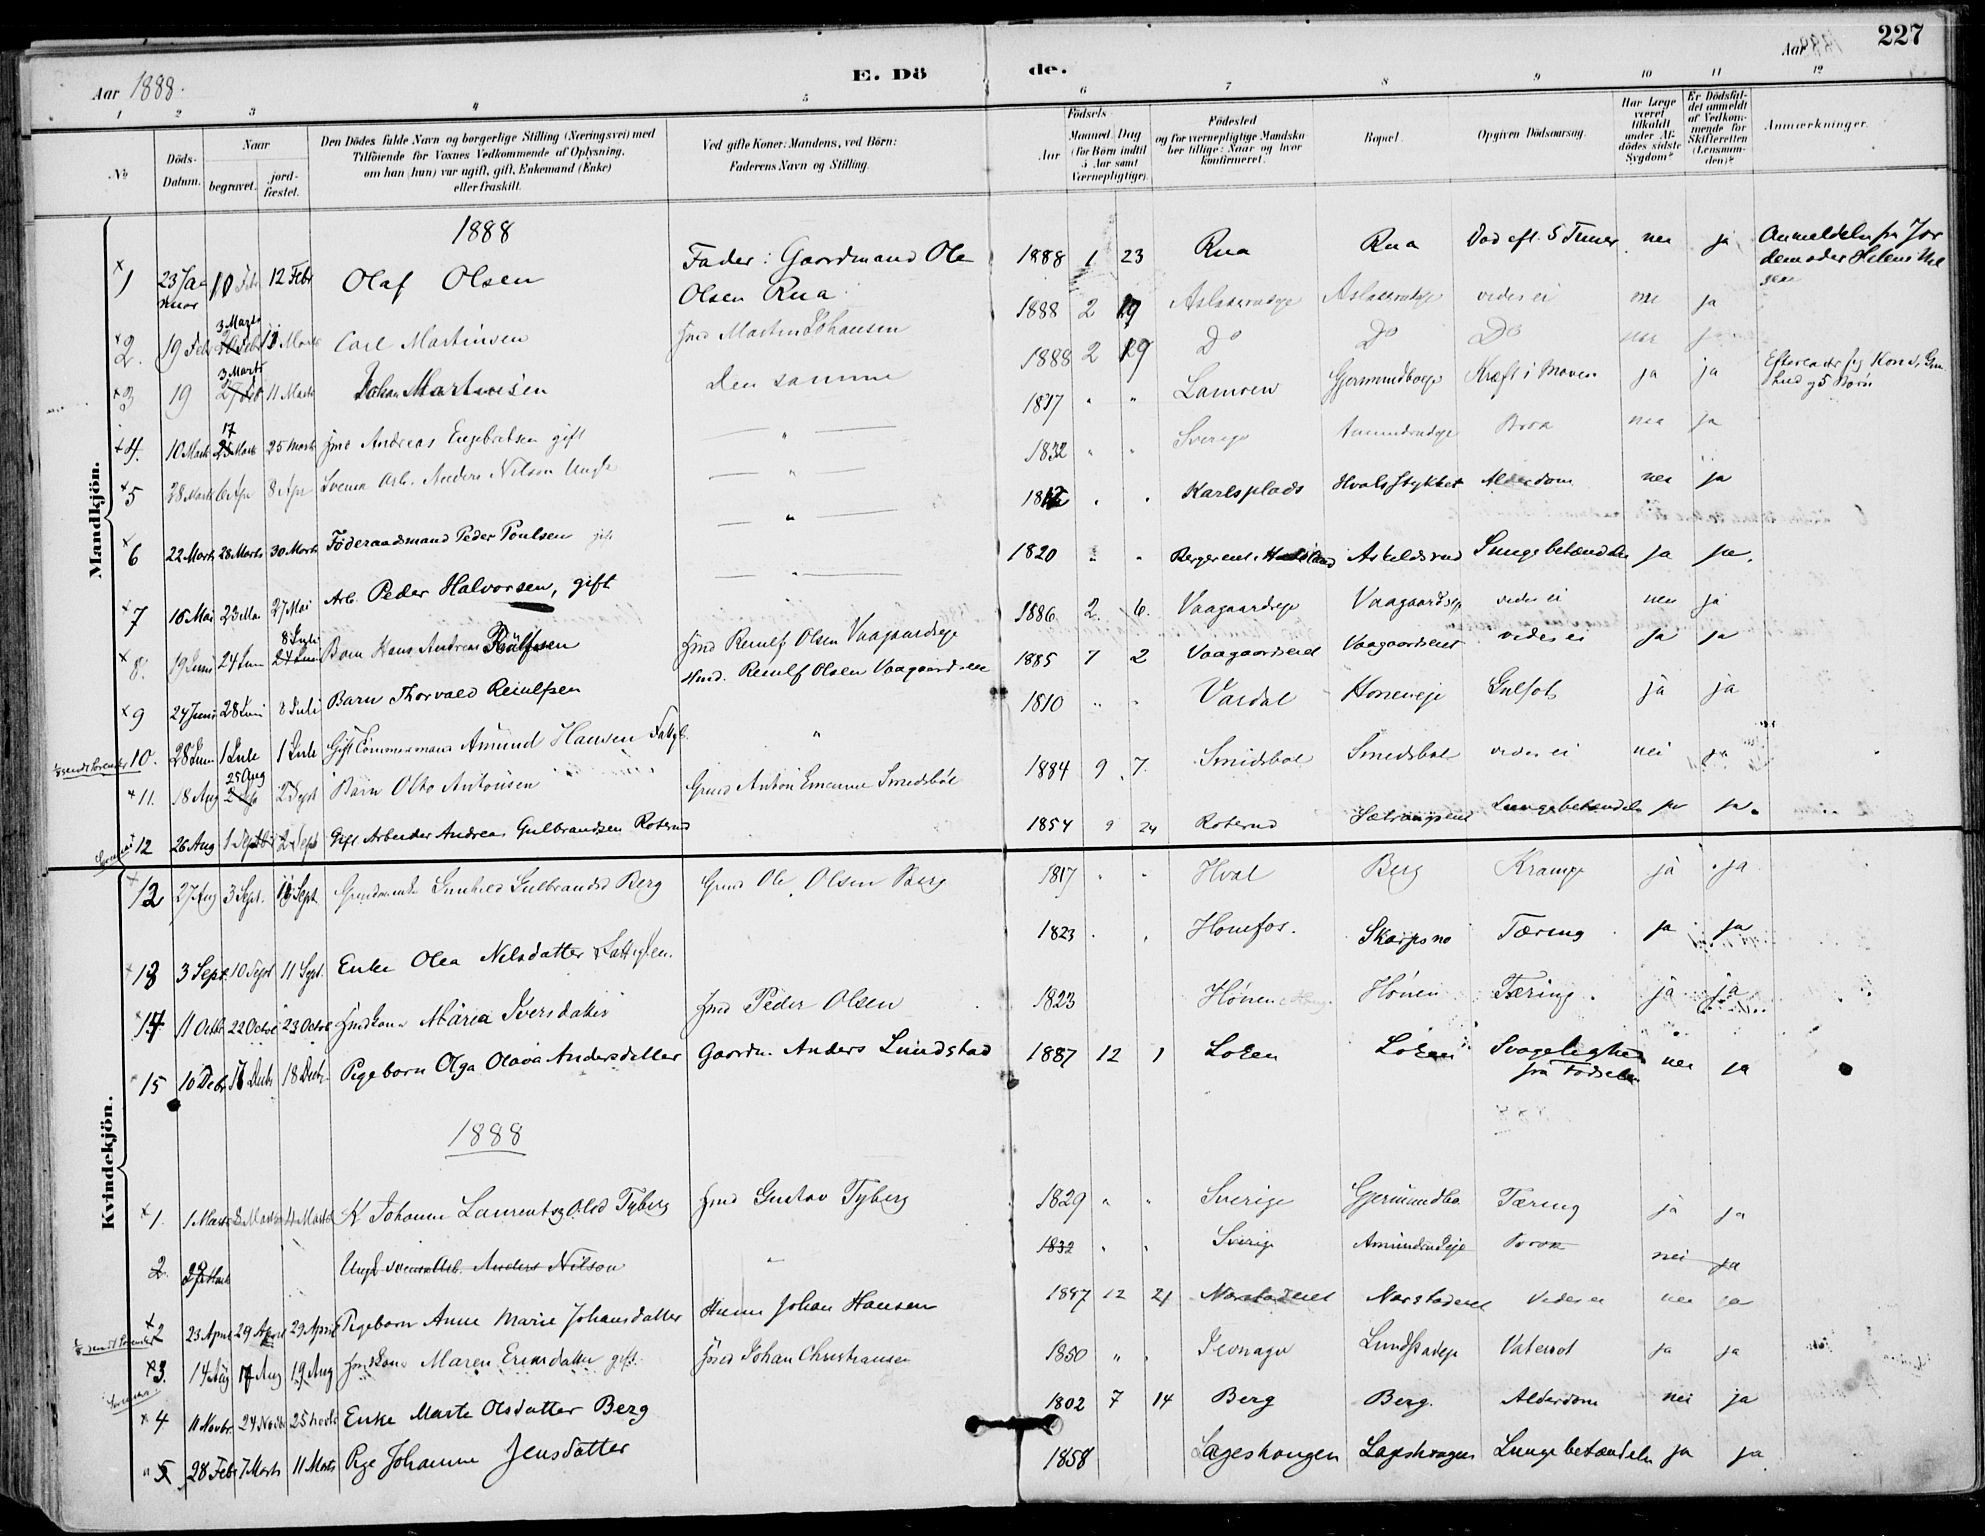 227
Aar 1888.
E. Dö
de.
Aar 1888
1 2 3 4 5 6 7 8 9 10 11 12
No
Döds-Datum.
Naar
begravet.
jord-fæstet.
Den Dödes fulde Navn og borgerlige Stilling (Næringsvei) med
Tilföiende for Voxnes Vedkommende af Oplysning,
om han (hun) var ugift, gift, Enkemand (Enke)
eller fraskilt.
Ved gifte Koner: Mandens, ved Börn:
Faderens Navn og Stilling.
Födsels
Aar
Maaned. Dag
(for Börn indtil
5 Aar samt
Værnepligtige).
Födested
og for værnepligtige Mandska
ber tillige: Naar og hvor
konfirmeret.
Bopæl.
Opgiven Dödsaarsag.
Har Læge
været
tilkaldt
under Af-
dödes sidste
Sygdom?
Er Dödsfal-
det anmeldt
af Vedkom-
mende for
Skifteretten
(Lensman-
den)?
Anmærkninger.
Mandkjön.
1888
1 23 Januar 10 Feb 12 Febr Olaf Olsen Fader: Gaardmand Ole Olsen Rua 1888 1 23 Rua Rua Död eft. 5 Timer nei ja Anmeldelse fra Jordemoder Helene
2. 19 Febr 3 Marts 11 Marts Carl Martinsen Hmd Martin Johansen 1888 2 19 vides ei nei ja
3 19 3 Marts 11 Marts Johan Martinsen den samme 1888 2 19 Do Do Do nei ja
4. 10 Marts 17 25 Marts Hmd Andreas Engebretsen gift " 1837 " " Lamoen Gjermundboeje Kræft i Maven ja ja Efterlader sig Kone, og 5 Börn
5 28 Marts 6 Apr 8 Apr Svensk Arb. Anders Nilson Ungk " 1832 " " Sverige Amundrudeje nei ja
6 22 Marts 28 Marts 30 Marts Föderaadsmand Peder Poulsen gift " 18 " " Karlsplads Hvalsstykket Alderdom nei ja
7 16 Mai 23 Mai 27 Mai Arb. Peder Halvorsen, gift " 1820 " " Askeldsrud Lungebetændelse ja ja.
8. 19 Juni 24 Juni 8 Juli Barn Hans Andreas Reulfsen Hmd Reulf Olsen Vaagaardseje 1886 2 6. Vaagaardseje Vaagaardseje vides ei nei ja
9 24 Juni 28 Juni 8 Juli Barn Thorvald Reiulfsen Hmd. Reulf Olsen Vaagaardseie 1885 7 2 Vaagaardseiet Vaagaardseiet vides ei ja ja
10. 28 Juni 1 Juli 1 Juli Gift Tömmermand Amund Hansen Fattigl. " 1810 " " Vardal Honeneje Gulsot ja ja
11. 18 Aug 25 Aug 2 Sept Barn Otto Antonsen Gmd Anton Smedsböl 1884 9 7. Smidsböl Smedsböl vides ei nei ja
12 26 Aug 1 Septbr 2 Sept Gift Arbeider Andreas Gulbrandsen Roterud 1854 9 24 Roterud Lungebetændelse ja ja.
12 27 Aug 3 Sept. Sept. Gunhild Gulbrandsd Berg Gmd Ole Olsen Berg 1817 " " Hval Berg Krampe ja ja
13 3 Sept. 10 Sept 11 Sept. Enke Olea Nilsdatter Fattiglem. 1823 Honefos. Skarpsno Tæring ja ja
14 11 Octb 22 Octbr 23 Octbr Hmdkone Maria Iversdatter Hmd Peder Olsen 1823 Hönen Hönen Tæring. ja ja
15 10 Debr 17 Decbr 18 Decbr. Pigebarn Olga Olava Andersdatter Gaardm. Anders Lundstad 1887 12 1 Loken Loken Svagelighed fra Fodselen nei ja
Kvindekjön.
1888
1. 1 Marts 8 Marts Marts K Johanne Laurentze Olsd Tyberg Hmd Gustav Tyberg 1829 " " Sverige Gjermundbo Tæring ja ja
2. Marts Ungk Svensk Arb. Anders Nilson " 1832 " " Sverige Amundrudeje nei ja
2 23 April 29 April 29 April Pigebarn Anne Marie Johansdatter Huum Johan Hansen 1887 12 21 Norstadeiet Norstadeiet Vides ei nei ja
3. 14 Aug 17 Aug 19 Aug Hmdkone Maren gift Hmd Johan Christiansen 1850 " " Jevnager Lundstadeje Vatersot ja ja
4 11 Novbr. 24 Novbr 25 Novbr Enke Marte Olsdatter Berg 1802 7 14 Berg Berg. Alderdom nei ja
5 28 Febr 7 Marts 11 Marts Pige Johanne Jensdatter 1858 Lageshaugen Lageshaugen Lungebetændelse ja ja